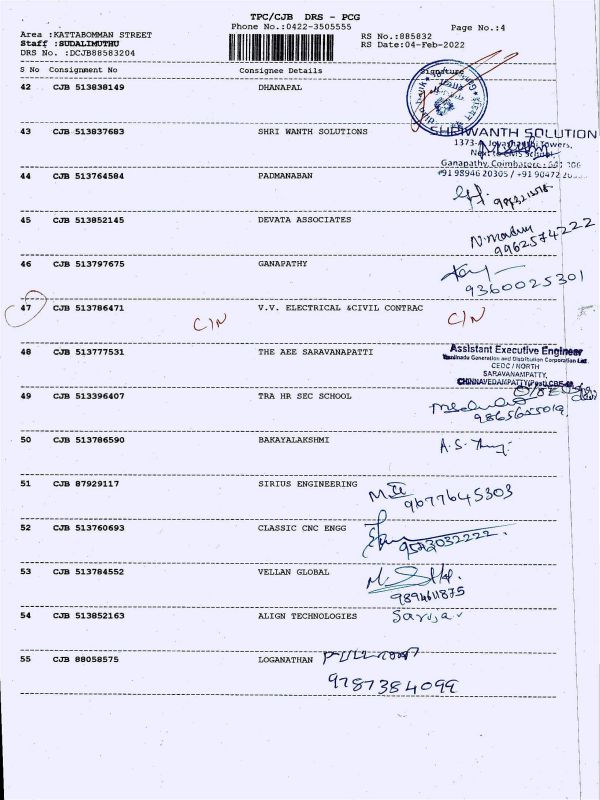 TPC/CJB DRS - PCG
Phone No.:0422-3505555 Page No.:4
Area :KATTABOMMAN STREET RS No.:885832
Staff :SUDALIMUTHU RS Date:04-Feb-2022
DRS No. :DCJB88583204
S No Consignment No Consignee Details Signature
42 CJB 513838149 DHANAPAL
43 CJB 513837683 SHRI WANTH SOLUTIONS SHRIWANTH SOLUTION
Towers,
Ganapathy, Coimbatore
44 CJB 513764584 PADMANABAN +91 98946 20305 / +91 90472
45 CJB 513852145 DEVATA ASSOCIATES
9962574222
46 CJB 513797675 GANAPATHY
9360025301
47 CJB 513786471 V.V. ELECTRICAL &CIVIL CONTRAC
C/N C/N
48 CJB 513777531 THE AEE SARAVANAPATTI Assistant Executive Engineer
Tamilnadu Generation and Distribution Corporation Ltd.
CEDC / NORTH
SARAVANAMPATTY,
CHINNAVEDAMPATTY(Post),CBE-49
49 CJB 513396407 TRA HR SEC SCHOOL
50 CJB 513786590 BAKAYALAKSHMI
51 CJB 87929117 SIRIUS ENGINEERING
9677645303
52 CJB 513760693 CLASSIC CNC ENGG
53 CJB 513784552 VELLAN GLOBAL
9894611875
54 CJB 513852163 ALIGN TECHNOLOGIES
55 CJB 88058575 LOGANATHAN
9787384099